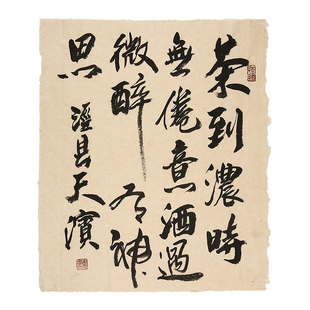 茶到濃時
無倦意酒過
微醉有神
思涇县天濱